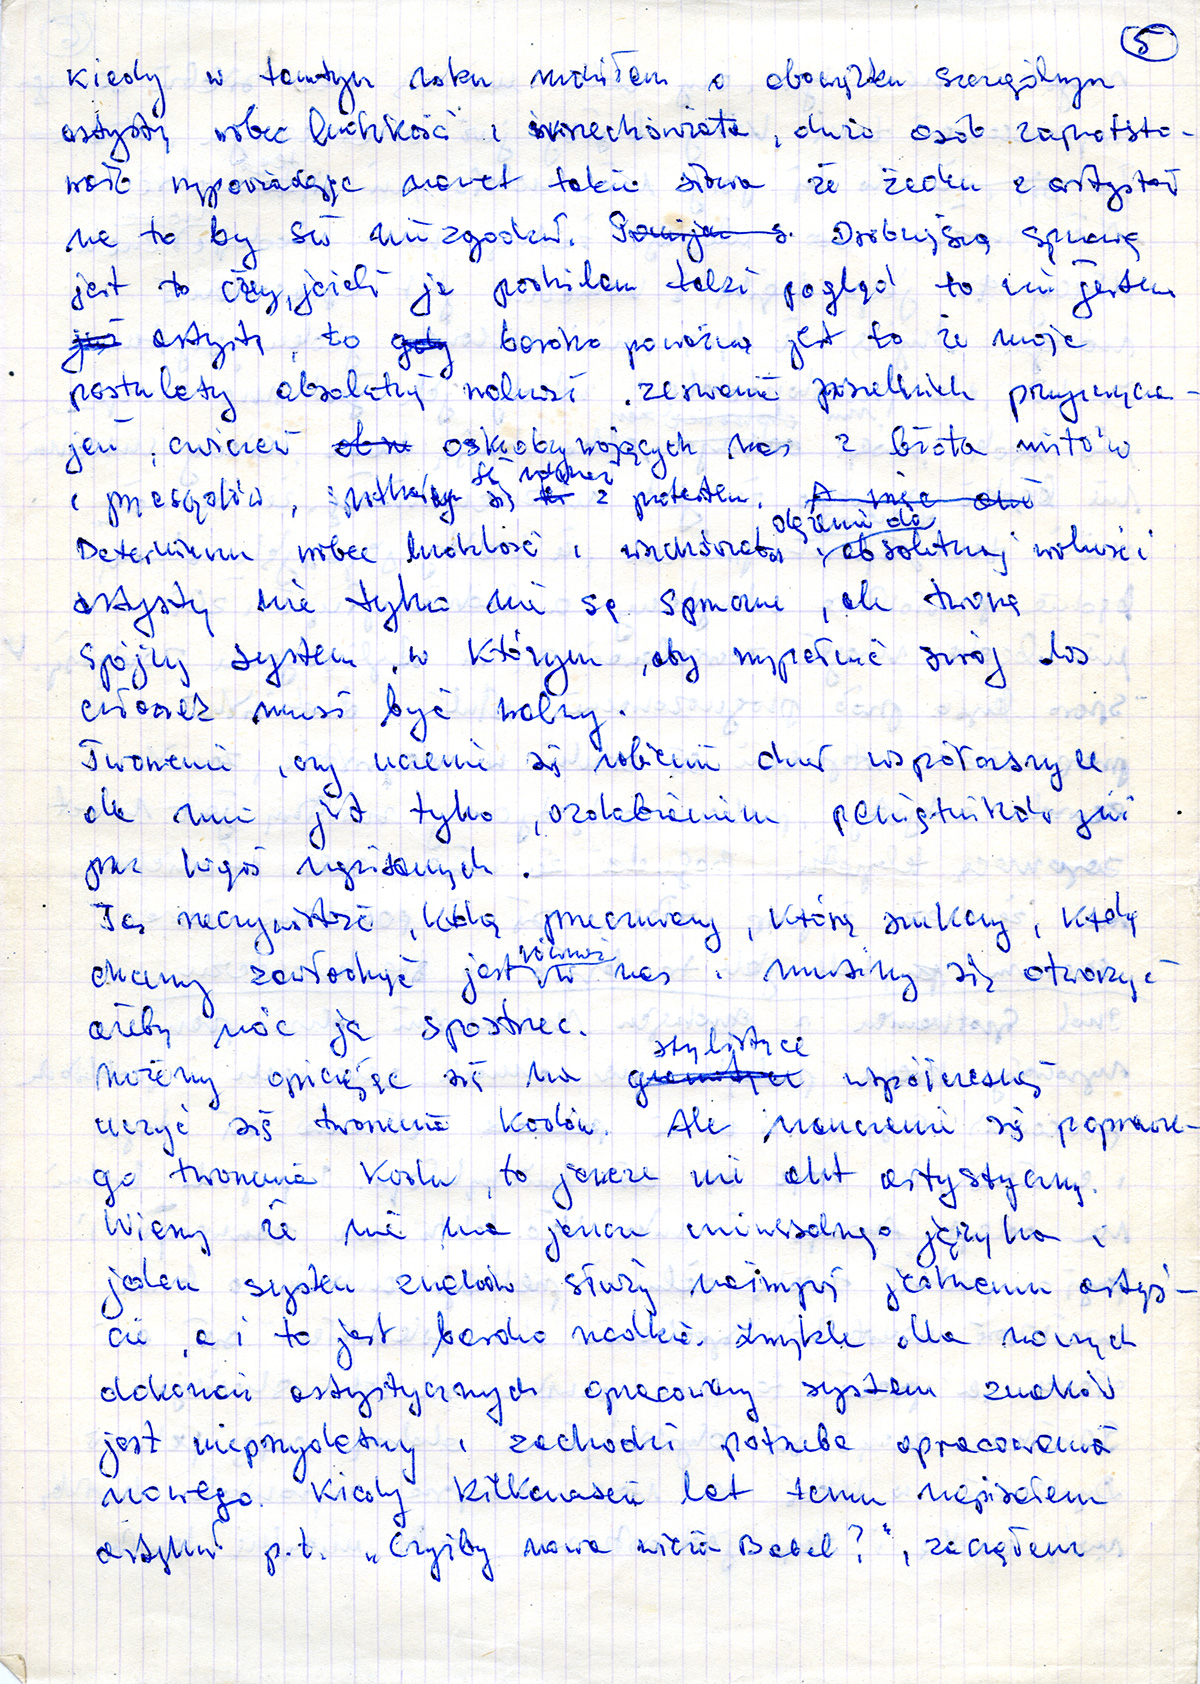 5
Kiedy w tamtym roku mówiłem o obowiązku szczególnym
artysty wobec ludzkości i wszechświata, dużo osób zaprotesto-
wało wypowiadając nawet takie słowa że żaden z artystów
na to by się nie zgodził. Pomijam s. Drobniejszą sprawą
jest to czy, jeżeli ja posiadam taki pogląd to nie jestem
już artystą, to gdy bardzo poważne jest to że moje
postulaty absolutnej wolności, zerwania wszelkich przyzwycza-
jeń, ćwiczeń oskrobywujących nas z błota mitów
i przesądów, spotkały się również z protestem. A więc
Determinizm wobec ludzkości i wszechświata, dążenie do absolutnej wolności
artysty nie tylko nie są sprzeczne, ale tworzą
spójny system, w którym, aby wypełnić swój los
człowiek musi być wolny.
Tworzenie, czy uczenie się robienia dzieł współcześnie
dla mnie jest tylko, ozdabianiem
przez kogoś wypisanych.
Ta rzeczywistość, którą przeczuwamy, którą szukamy, którą
chcemy zawładnąć jest również w nas i musimy się otworzyć
ażeby móc ją spostrzec.
Możemy opierając się na gramatyce stylistyce współczesnej
uczyć się tworzenia kodów. Ale nauczenie się poprawne-
go tworzenia kodu, to jeszcze nie akt artystyczny.
Wiemy że nie ma jeszcze uniwersalnego języka i
jeden system znaków służy najwyżej jednemu artyś-
cie, a i to jest bardzo rzadkie. Zwykle dla nowych
dokonań artystycznych opracowany system znaków
jest nieprzydatny i zachodzi potrzeba opracowania
nowego. Kiedy kilkanaście lat temu napisałem
artykuł p.t. „Czyżby nowa wieża Babel?", zacząłem